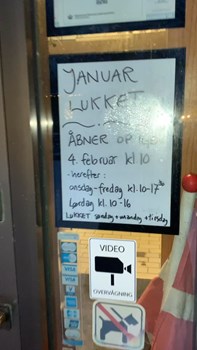 JANUAR
LUKKET
ÅBNER OP igen
4. februar kl 10
- herefter:
onsdag-fredag kl. 10-17³⁰
Lørdag kl. 10-16
LUKKET søndag + mandag + tirsdag
VIDEO
OVERVÅGNING
VISA
VISA